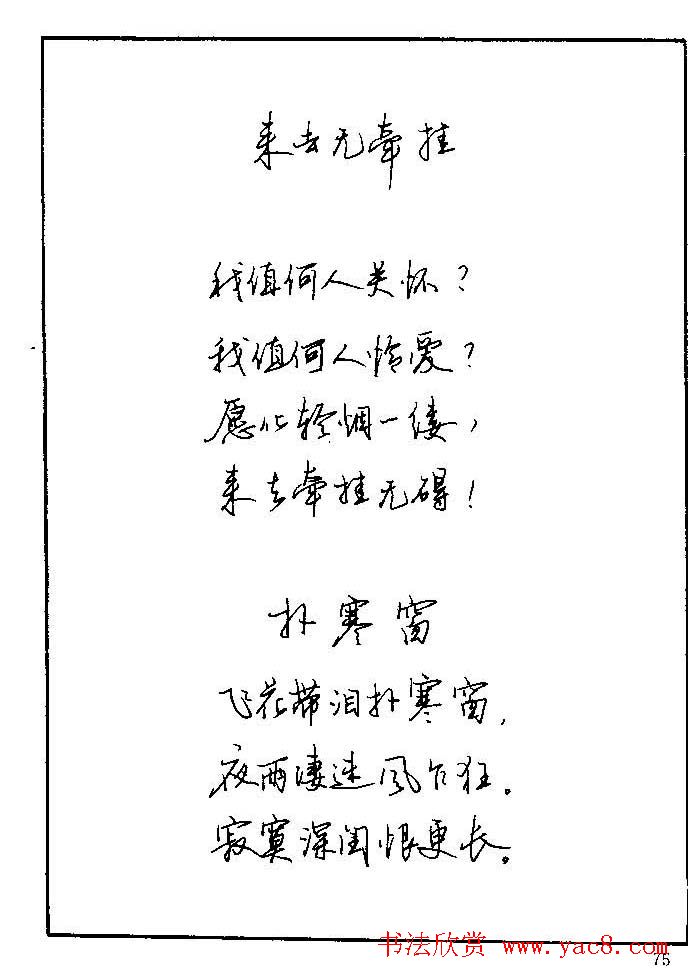 来去无牵挂
我值何人关怀？
我值何人怜爱？
愿化轻烟一缕，
来去牵挂无碍！
扑寒窗
飞花带泪扑寒窗，
夜雨凄迷风乍狂。
寂寞深闺恨更长。
书法欣赏 www.yac8.com
75